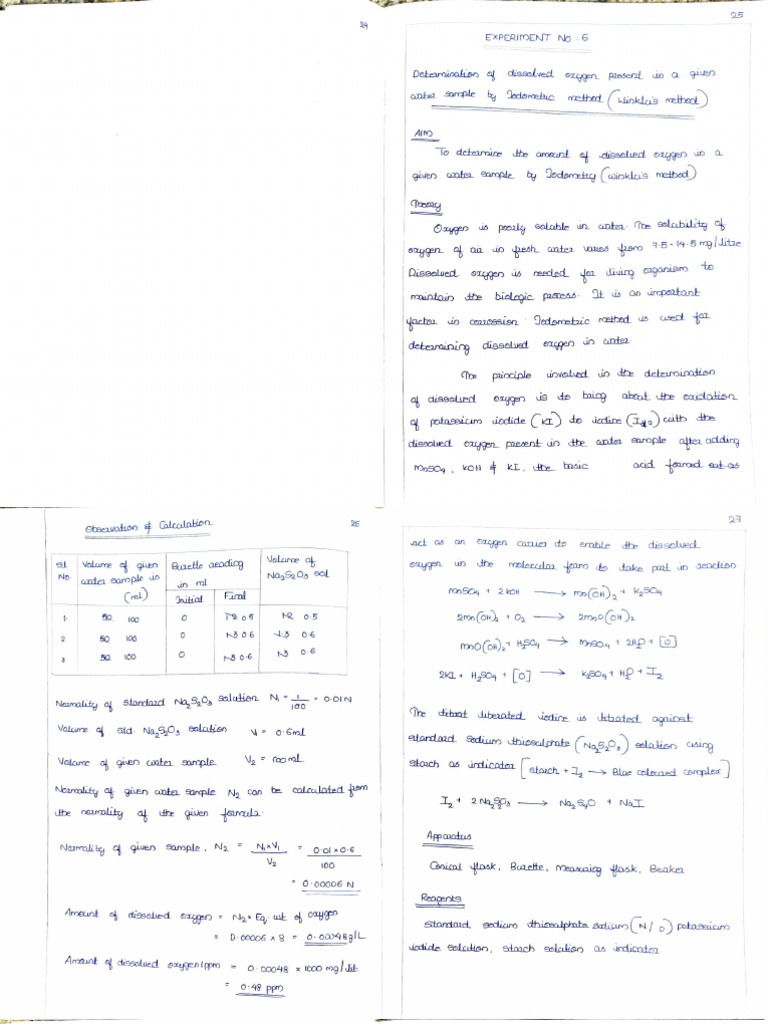 24
25
EXPERIMENT NO - 6
Determination of dissolved oxygen present in a given
water sample by Iodometric method (Winkler's method)
Aim
To determine the amount of dissolved oxygen in a
given water sample by Iodometry (Winkler's method)
Theory
Oxygen is poorly soluble in water. The solubility of
oxygen of air in fresh water varies from 7.5-14.5 mg/litre
Dissolved oxygen is needed for living organism to
maintain the biologic process. It is an important
factor in corrossion. Iodometric method is used for
determining dissolved oxygen in water.
The principle involved in the determination
of dissolved oxygen is to bring about the oxidation
of potassium iodide (KI) to iodine (I2) with the
dissolved oxygen present in the water sample after adding
MnSO4, KOH & KI, the basic acid formed out as
Observation & Calculation
26
Sl No
Volume of given water sample in (ml)
Burette reading in ml
Initial Final
Volume of Na2S2O3 sol
1. 100 0 0.5 0.5
2 100 0 0.6 0.6
3 100 0 0.6 0.6
Normality of standard Na2S2O3 solution N1 = 1/100 = 0.01N
Volume of std. Na2S2O3 solution V1 = 0.6ml
Volume of given water sample V2 = 100ml
Normality of given water sample N2 can be calculated from
the normality of the given formula.
Normality of given sample, N2 = N1×V1/V2 = 0.01×0.6/100
= 0.00006 N
Amount of dissolved oxygen = N2 × Eq. wt of oxygen
= 0.00006 × 8 = 0.00048g/L
Amount of dissolved oxygen/ppm = 0.00048 × 1000 mg/lit
= 0.48 ppm
27
act as an oxygen carrier to enable the dissolved
oxygen in the molecular form to take part in reaction
MnSO4 + 2KOH → Mn(OH)2 + K2SO4
2Mn(OH)2 + O2 → 2MnO(OH)2
MnO(OH)2 + H2SO4 → MnSO4 + 2H2O + [O]
2KI + H2SO4 + [O] → K2SO4 + H2O + I2
The liberated iodine is titrated against
standard sodium thiosulphate (Na2S2O3) solution using
starch as indicator [starch + I2 → Blue coloured complex]
I2 + 2Na2S2O3 → Na2S4O + NaI
Apparatus
Conical flask, Burette, Measuring flask, Beaker
Reagents
Standard sodium thiosulphate sodium (N/0) potassium
iodide solution, starch solution as indicator